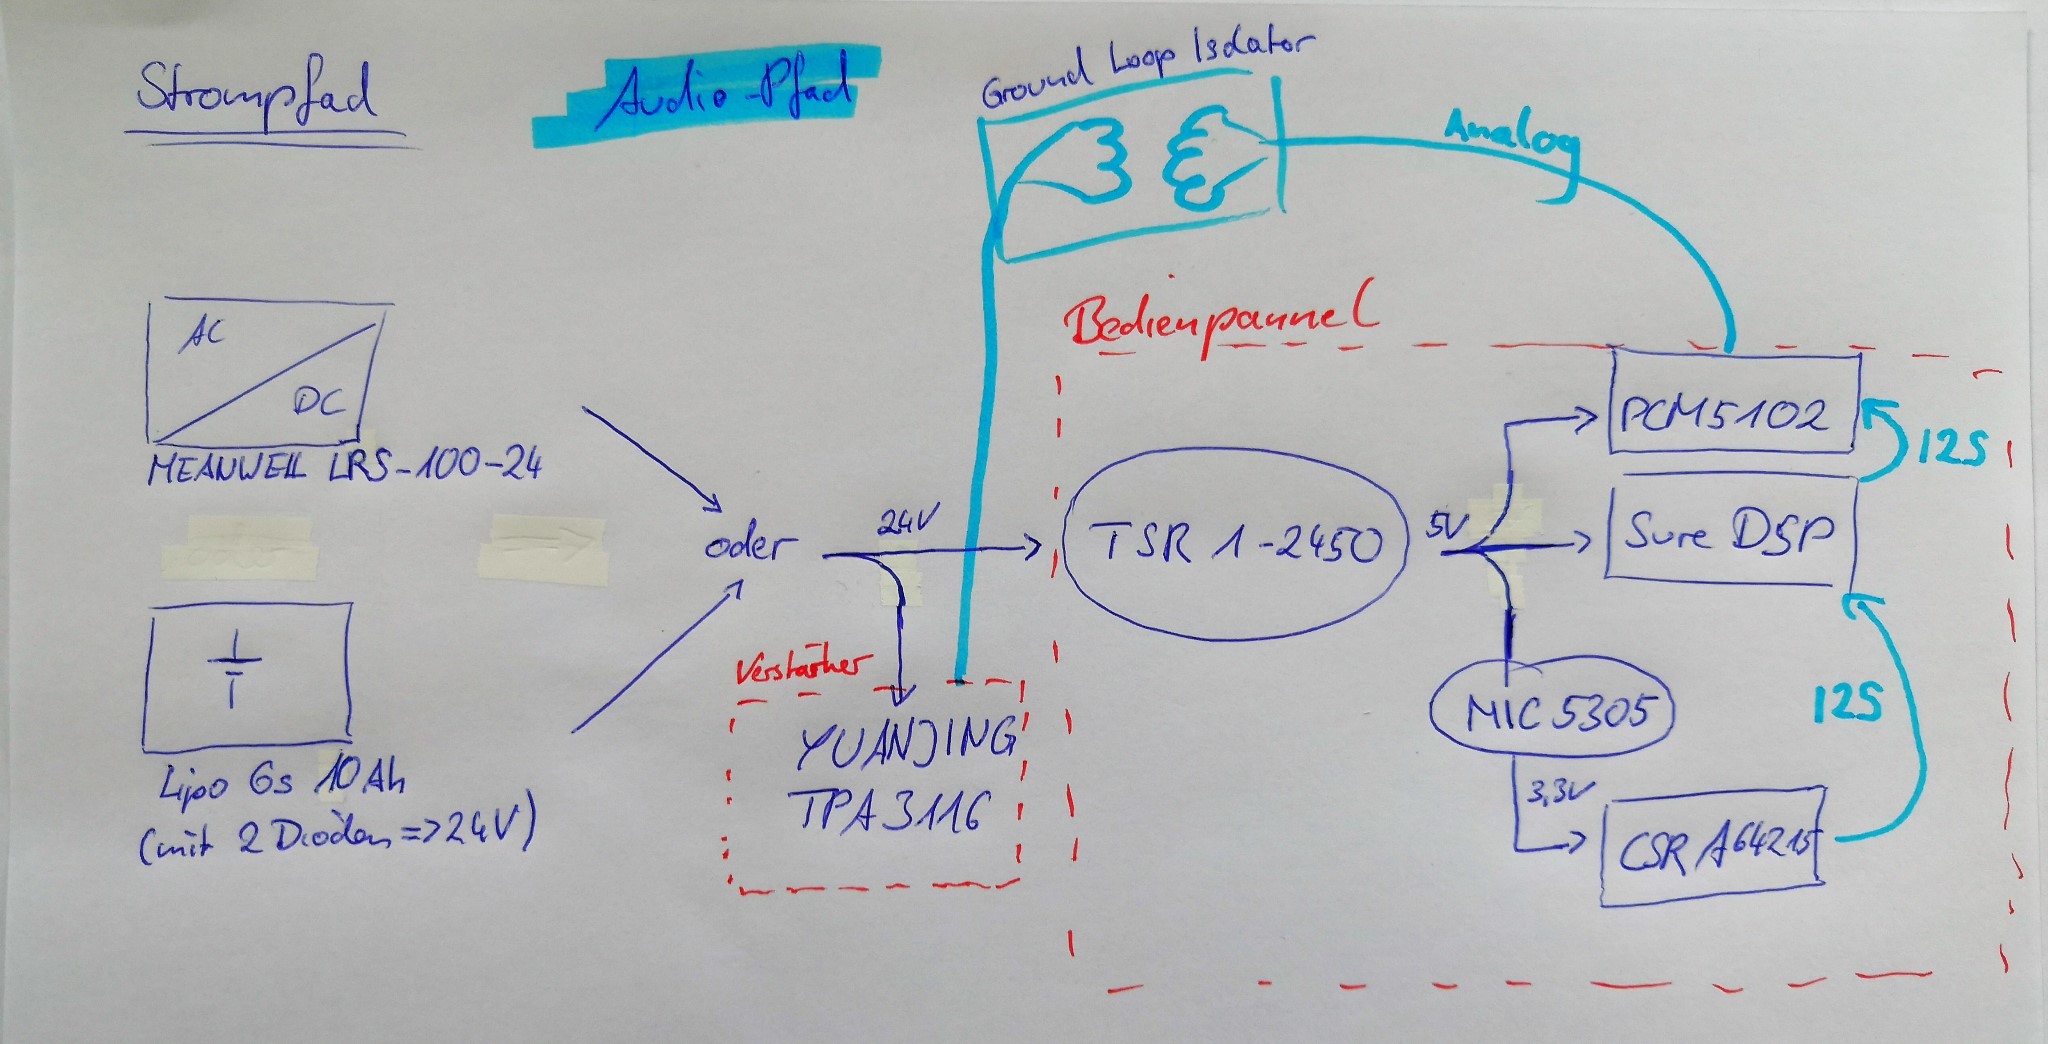 Strompfad
Audio-Pfad
Ground Loop Isolator
Analog
Bedienpannel
AC
DC
MEANWELL LRS-100-24
oder
24V
TSR 1-2450
5V
PCM5102
I2S
Sure DSP
Verstärker
YUANJING
TPA3116
MIC5305
I2S
3,3V
CSR A64215
Lipo 6s 10Ah
(mit 2 Dioden => 24V)